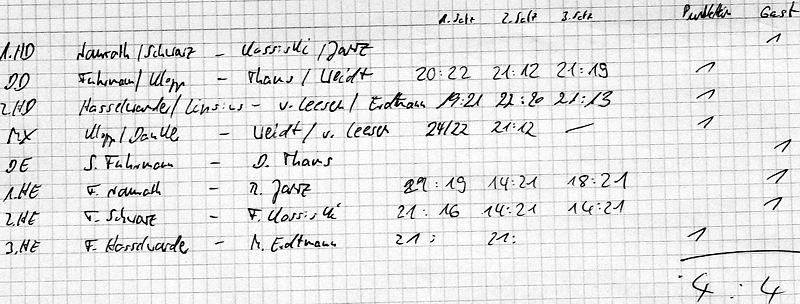 1.Satz 2.Satz 3.Satz Punkte Gast
1.HD Naurath/Schwarz - Klassiski/Jartz 1
DD Fuhrmann/Klopp - Thans/Weidt 20:22 21:12 21:19 1
2.HD Hasselvarde/Linsius - v.Leesen/Erdtmann 19:21 22:20 21:13 1
MX Klopp/Danke - Weidt/v.Leesen 24/22 21:12 — 1
DE S.Fuhrmann - D.Thans 1
1.HE F.Naurath - R.Jartz 21:19 14:21 18:21 1
2.HE T.Schwarz - F.Klassiski 21:16 14:21 14:21 1
3.HE F.Hasselvarde - M.Erdtmann 21: 21: 1
4:4